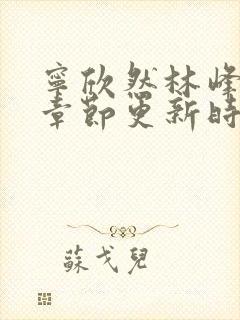 寧欣然林峰
章節更新時
蘇戈兒